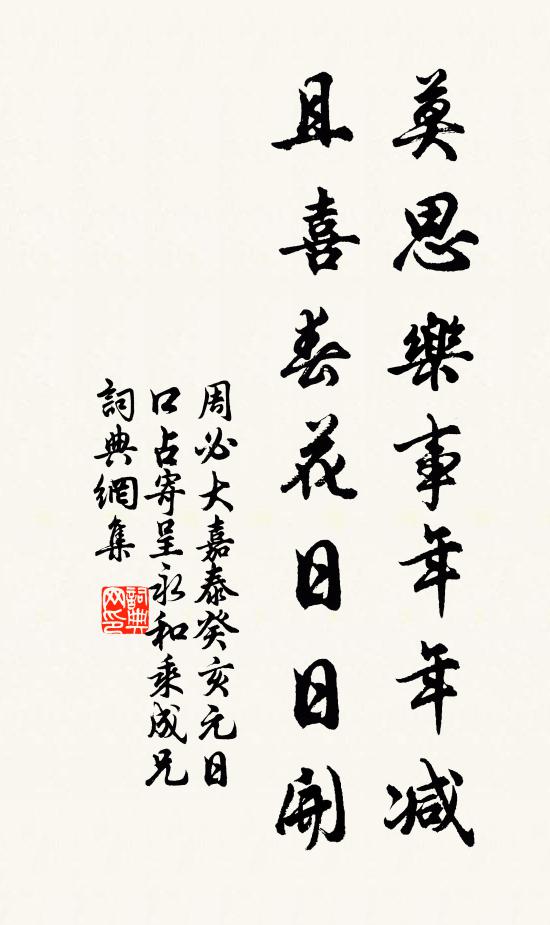 莫思樂事年年減
且喜春花日日開
周必大嘉泰癸亥元日
口占寄呈永和乘成兄
詞典網集
詞典網印